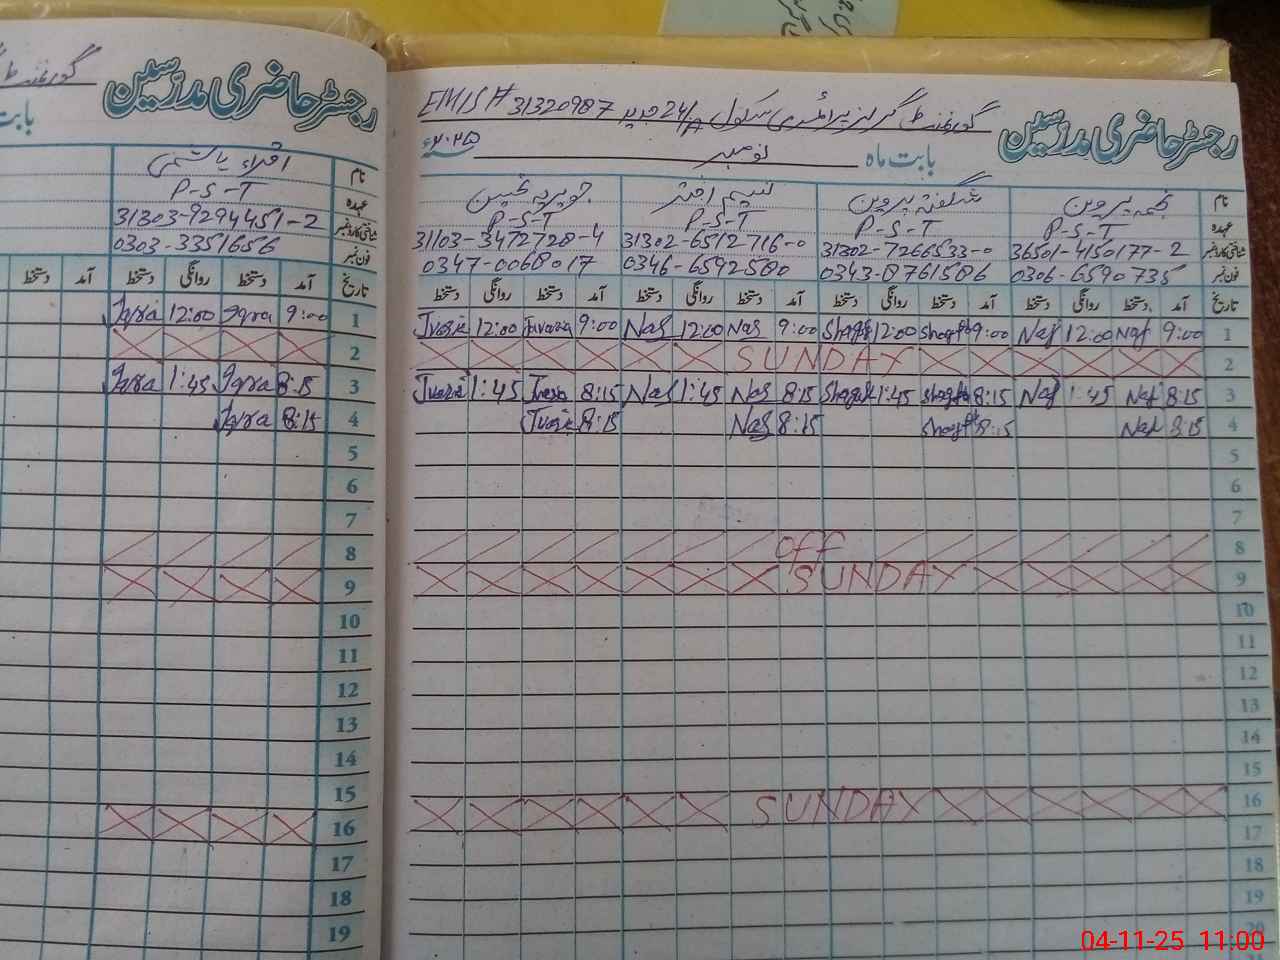 EMIS# 31320987 گورنمنٹ گرلز پرائمری سکول 24/A
رجسٹر حاضری مدرسین
بابت ماہ نومبر ۲۰۲۵ء
نام نجمہ پروین شگفتہ پروین نسیم اختر جویریہ
عہدہ P-S-T P-S-T P-S-T P-S-T
شناختی کارڈ نمبر 36501-4150177-2 31302-7266533-0 31302-6512716-0 31103-3472728-4
فون نمبر 0306-6590735 0343-8761586 0346-6592580 0347-0068017
تاریخ آمد دستخط روانگی دستخط آمد دستخط روانگی دستخط آمد دستخط روانگی دستخط آمد دستخط روانگی دستخط
1 9:00 Naj 12:00 Naj 9:00 12:00 9:00 Nas 12:00 Nas 9:00 Javaria 12:00
2 SUNDAY
3 8:15 Naj 1:45 Naj 8:15 1:45 8:15 Nas 1:45 Nas 8:15 1:45
4 8:15 Naj 8:15 8:15 Nas 8:15
5
6
7
8 off
9 SUNDAY
10
11
12
13
14
15
16 SUNDAY
17
18
19
20
رجسٹر حاضری مدرسین
گورنمنٹ
بابت
نام اقراء یاسمین
عہدہ P-S-T
شناختی کارڈ نمبر 31303-9294451-2
فون نمبر 0303-3351656
تاریخ آمد دستخط روانگی دستخط آمد دستخط
1 9:00 Iqra 12:00 Iqra
2
3 8:15 Iqra 1:45 Iqra
4 8:15 Iqra
5
6
7
8
9
10
11
12
13
14
15
16
17
18
19
04-11-25 11:00